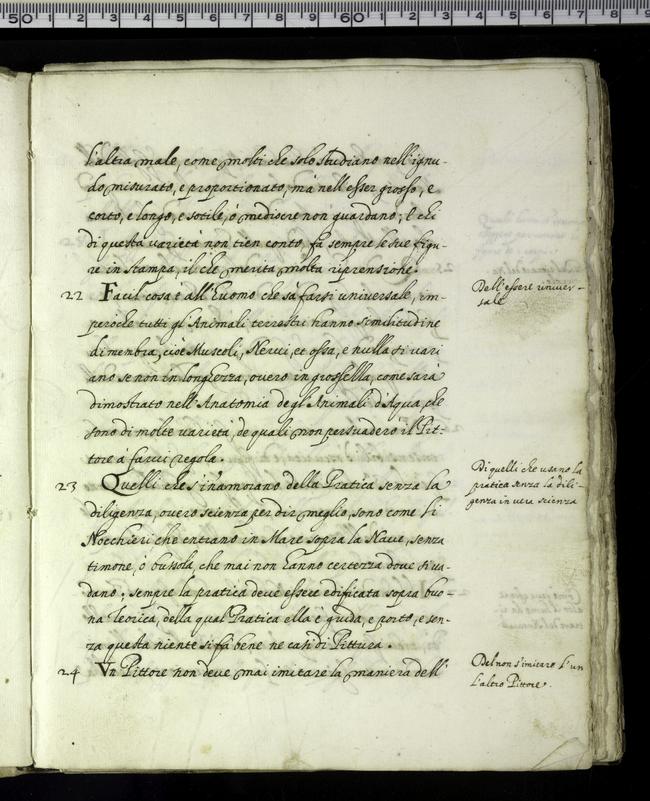 l'altra male, come molti che solo studiano nell'ignu-
do misurato, e proportionato, mà nell'esser grosso, e
corto, e longo, e sotile, ò mediocre non guardano; E chi
di questa varietà non tien conto, fà sempre le sue figu-
re in stampa, il che merita molta riprensione.
22 Facil cosa è all'huomo che sà farsi universale, im-
Dell'essere univer-
sale
peroche tutti gl'Animali terrestri hanno similitudine
di membra, cioè Muscoli, Nervi, et ossa, e nulla si vari
ano se non in longhezza, overo in grossezza, come sarà
dimostrato nell'Anatomia degl'Animali d'Aqua, che
sono di molte varietà, de quali non persuaderò il Pit-
tore à farvi regola.
23 Quelli che s'inamorano della Pratica senza la
Di quelli che usano la
pratica senza la dili-
genza in vera scienza
diligenza, overo scienza per dir meglio, sono come li
Nocchieri che entrano in Mare sopra la Nave, senza
timone, ò bussola, che mai non hanno certezza dove si va-
dano; sempre la pratica deve essere edificata sopra buo-
na Teorica, della qual Pratica ella è guida, e porto, e sen-
za questa niente si fà bene ne casi di Pittura.
24 Un Pittore non deve mai imitare la maniera dell'
Del non s'imitare l'un
l'altro Pittore.